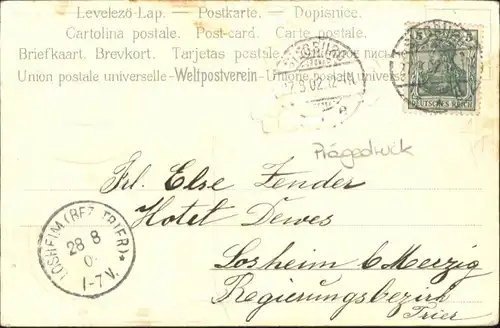 Levelező-Lap. — Postkarte. — Dopisnice.
Cartolina postale. Post-card. Carte postale.
Briefkaart. Brevkort. Tarjetas postale
Union postale universelle - Weltpostverein - Unione postale universa
SIEGBURG
.8.02.12
DEUTSCHES REICH
Prägedruck
Frl. Else Zender
Hotel Dewes
Losheim b Merzig
Regierungsbezirk
Trier
LOSHEIM (BEZ. TRIER) *
28 8
0
1-7V.